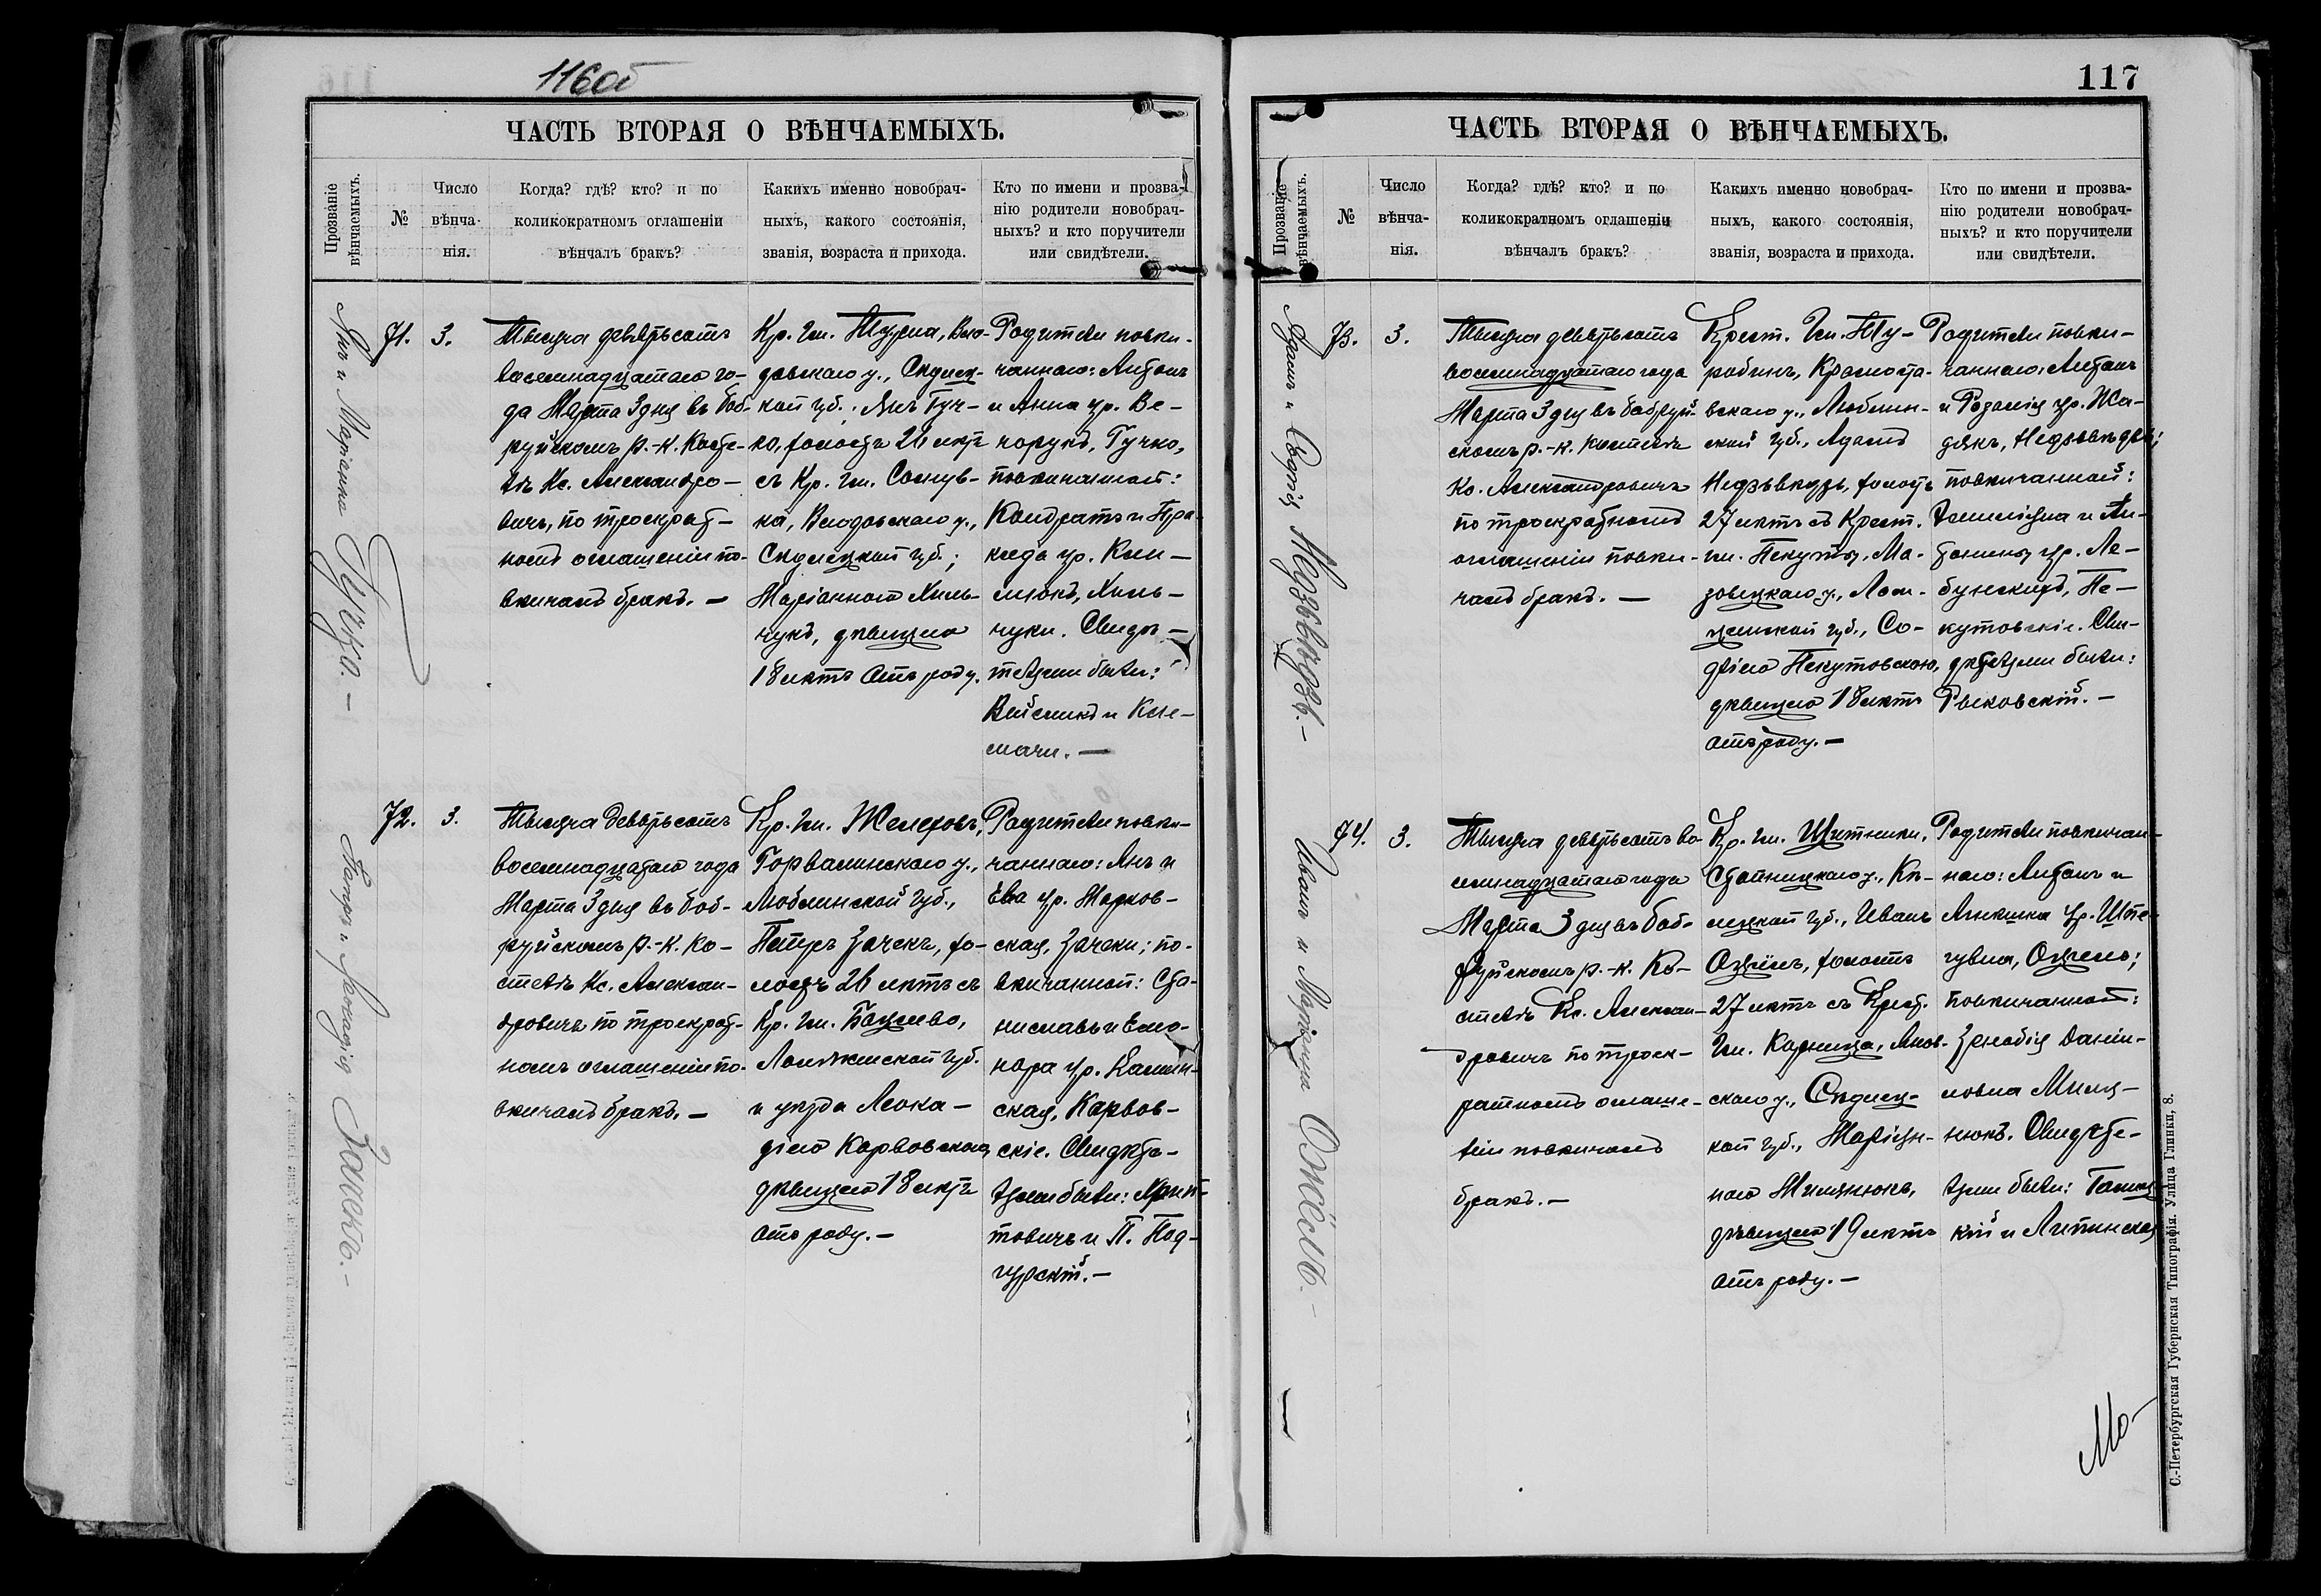 116об
ЧАСТЬ ВТОРАЯ О ВѢНЧАЕМЫХЪ.
Прозваніе
вѣнчаемыхъ.
№
Число
вѣнча-
нія.
Когда? гдѣ? кто? и по
коликократномъ оглашеніи
вѣнчалъ бракъ?
Какихъ именно новобрач-
ныхъ, какого состоянія,
званія, возраста и прихода.
Кто по имени и прозва-
нію родители новобрач-
ныхъ? и кто поручители
или свидѣтели.
Янъ и Маріанна Гучко. —
71.
3.
Тысяча девятьсотъ
восемнадцатаго го-
да Марта 3 дня въ Боб-
руйскомъ р.-к. Косте-
лѣ Кс. Александро-
вичъ, по троекрат-
номъ оглашеніи по-
вѣнчалъ бракъ. —
Кр. гм. Турна, Вло-
давскаго у., Сѣдлец-
кой губ., Янъ Гуч-
ко, холостъ 26 лѣтъ
съ Кр. гм.
ка, Влодавскаго у.,
Сѣдлецкой губ.;
Маріанною Хиль-
чукъ, дѣвицею
18 лѣтъ отъ роду.
Родители повѣн-
чаннаго: Антонъ
и Анна ур. Ве-
чорукъ, Гучко,
повѣнчанной:
Кондратъ и Пра-
кседа ур. Кли-
мюкъ, Хиль-
чуки. Свидѣ-
телями были:
Войсликъ и Кле-
мачи. —
Петръ и Леокадія Зачекъ. —
72.
3.
Тысяча девятьсотъ
восемнадцатаго года
Марта 3 дня въ Боб-
руйскомъ р.-к. Ко-
стелѣ Кс. Алексан-
дровичъ по троекрат-
номъ оглашеніи по-
вѣнчалъ бракъ. —
Кр. гм. Желеховъ,
Горвалинскаго у.,
Люблинской губ.,
Петръ Зачекъ, хо-
лостъ 26 лѣтъ съ
Кр. гм.
Ломжинской губ.
и уѣзда Леока-
діею Карвовскою,
дѣвицею 18 лѣтъ
отъ роду. —
Родители повѣн-
чаннаго: Янъ и
Ева ур. Марков-
ская, Зачеки; по-
вѣнчанной: Ста-
ниславъ и Елео-
нора ур. Камин-
ская, Карвов-
скіе. Свидѣте-
лями были:
товичъ и П. Под-
гурскій. —
117
ЧАСТЬ ВТОРАЯ О ВѢНЧАЕМЫХЪ.
Прозваніе
вѣнчаемыхъ.
№
Число
вѣнча-
нія.
Когда? гдѣ? кто? и по
коликократномъ оглашеніи
вѣнчалъ бракъ?
Какихъ именно новобрач-
ныхъ, какого состоянія,
званія, возраста и прихода.
Кто по имени и прозва-
нію родители новобрач-
ныхъ? и кто поручители
или свидѣтели.
Адамъ и Софія Недзьвѣдзь. —
73.
3.
Тысяча девятьсотъ
восемнадцатаго года
Марта 3 дня въ Бобруй-
скомъ р.-к. Костелѣ
Кс. Александровичъ
по троекратномъ
оглашеніи повѣн-
чалъ бракъ. —
Крест. гм. Ту-
робинъ, Красноста-
вскаго у., Люблин-
ской губ., Адамъ
Недзьвѣдзь, холостъ
27 лѣтъ съ Крест.
гм. Пекуты, Ма-
зовецкаго у., Лом-
жинской губ., Со-
фіею Пекутовскою,
дѣвицею 18 лѣтъ
отъ роду. —
Родители повѣн-
чаннаго: Антонъ
и Розалія ур. Жа-
дякъ, Недзьвѣдзь;
повѣнчанной:
и Ан-
тонины ур. Ле-
бунскихъ, Пе-
кутовскіе. Сви-
дѣтелями были:
Рыковскій. —
Иванъ и Маріанна Ожёсь. —
74.
3.
Тысяча девятьсотъ во-
семнадцатаго года
Марта 3 дня въ Боб-
руйскомъ р.-к. Ко-
стелѣ Кс. Алексан-
дровичъ по троек-
ратномъ оглаше-
ніи повѣнчалъ
бракъ. —
Кр. гм. Щитники,
Стопницкаго у., Кѣ-
лецкой губ., Иванъ
холостъ
27 лѣтъ съ Крест.
гм. Карница, Янов-
скаго у., Сѣдлец-
кой губ., Маріан-
ною
дѣвицею 19 лѣтъ
отъ роду. —
Родители повѣнчан-
наго: Антонъ и
Агнешка ур.
повѣнчанной:
Зенобія Дани-
ловна
нюкъ. Свидѣте-
лями были:
кій и Литинская
Мо-
С.-Петербургская Губернская Типографія. Улица Глинки, 8.